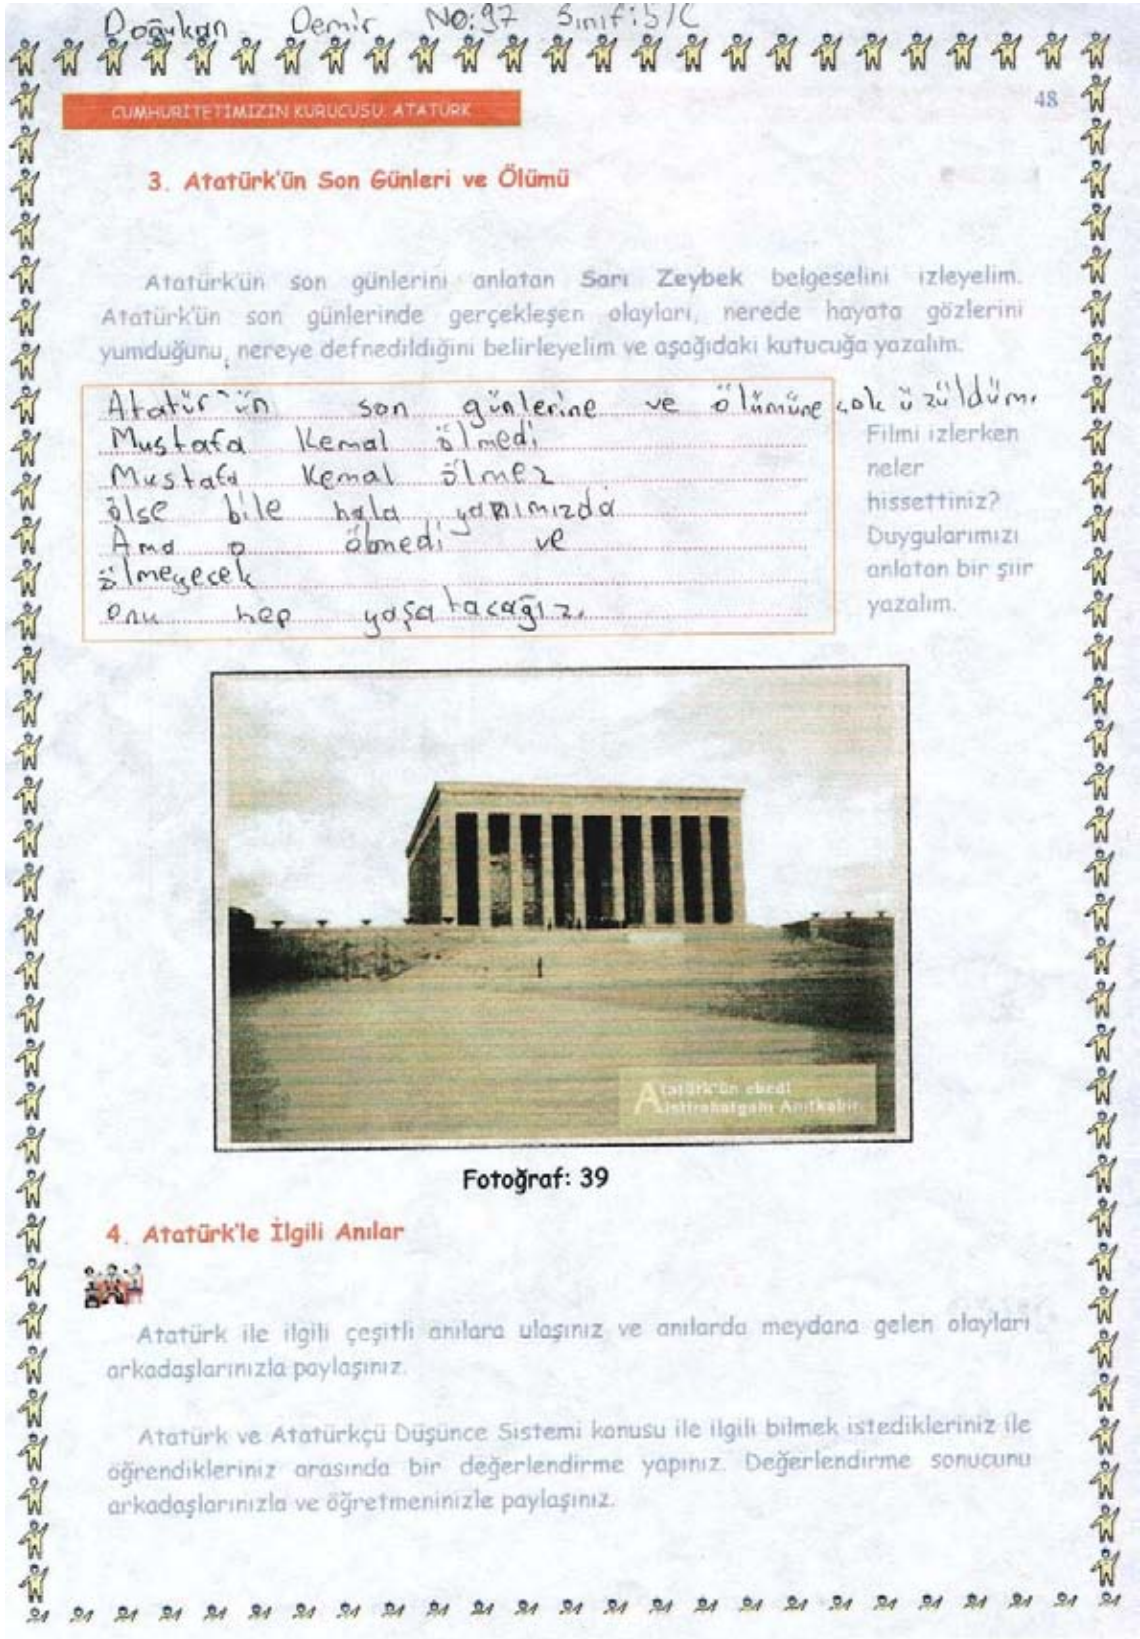 Doğukan Demir No:97 Sınıf:5/C
CUMHURİTETİMİZİN KURUCUSU: ATATÜRK
48
3. Atatürk'ün Son Günleri ve Ölümü
Atatürk'ün son günlerini anlatan Sarı Zeybek belgeselini izleyelim.
Atatürk'ün son günlerinde gerçekleşen olayları, nerede hayata gözlerini
yumduğunu, nereye defnedildiğini belirleyelim ve aşağıdaki kutucuğa yazalım.
Atatür'ün son günlerine ve ölümüne çok üzüldüm.
Mustafa Kemal ölmedi
Mustafa Kemal ölmez
ölse bile hala yanımızda
Ama o ölmedi ve
ölmeyecek
onu hep yaşatacağız.
Filmi izlerken
neler
hissettiniz?
Duygularımızı
anlatan bir şiir
yazalım.
Atatürk'ün ebedi
istirahatgahı Anıtkabir
Fotoğraf: 39
4. Atatürk'le İlgili Anılar
Atatürk ile ilgili çeşitli anılara ulaşınız ve anılarda meydana gelen olayları
arkadaşlarınızla paylaşınız.
Atatürk ve Atatürkçü Düşünce Sistemi konusu ile ilgili bilmek istedikleriniz ile
öğrendikleriniz arasında bir değerlendirme yapınız. Değerlendirme sonucunu
arkadaşlarınızla ve öğretmeninizle paylaşınız.